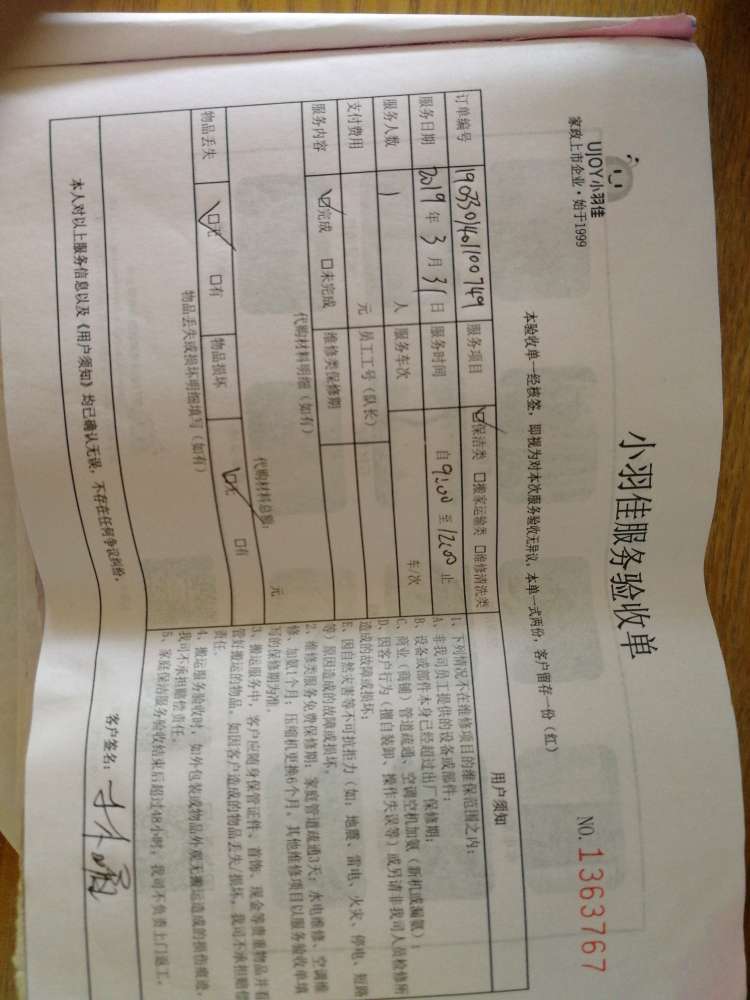 UJOY小羽佳
家政上市企业·始于1999
小羽佳服务验收单
NO. 1363767
本验收单一经核签，即视为对本次服务验收无异议，本单一式两份，客户留存一份（红）
订单编号 1903301401100749 服务项目 ☑保洁类 □搬家运输类 □维修清洗类
服务日期 2019 年 3 月 31 日 服务时间 自 9:00 至 12:00 止
服务人数 1 人 服务车次 车/次
支付费用 元 员工工号（队长）
服务内容 ☑完成 □未完成 维修类保修期
代购材料明细（如有）
代购材料总额： 元
物品丢失 ☑无 □有 物品损坏 ☑无 □有
物品丢失或损坏明细填写（如有）
用户须知
1、下列情况不在维修项目的维保范围之内：
A、非我司员工提供的设备或部件；
B、设备或部件本身已经超过出厂保修期；
C、商业（商铺）管道疏通、空调空机加氨（新机或漏氨）；
D、因客户行为（擅自装卸、操作失误等）或另请非我司人员检修所
造成的故障或损坏；
E、因自然灾害等不可抗拒力（如：地震、雷电、火灾、停电、短路
等）原因造成的故障或损坏。
2、维修类服务免费保修期：家庭管道疏通3天；水电维修、空调维
修、加氨1个月；压缩机更换6个月。其他维修项目以服务验收单填
写的保修期为准。
3、搬运服务中，客户应随身保管证件、首饰、现金等贵重物品并看
管好搬运的物品。如因客户造成的物品丢失/损坏，我司不承担赔偿
责任。
4、搬运服务验收时，如外包装或物品外观无搬运造成的损伤痕迹，
我司不承担赔偿责任。
5、家庭保洁服务验收结束后超过48小时，我司不负责上门返工。
本人对以上服务信息以及《用户须知》均已确认无误，不存在任何争议纠纷。
客户签名：